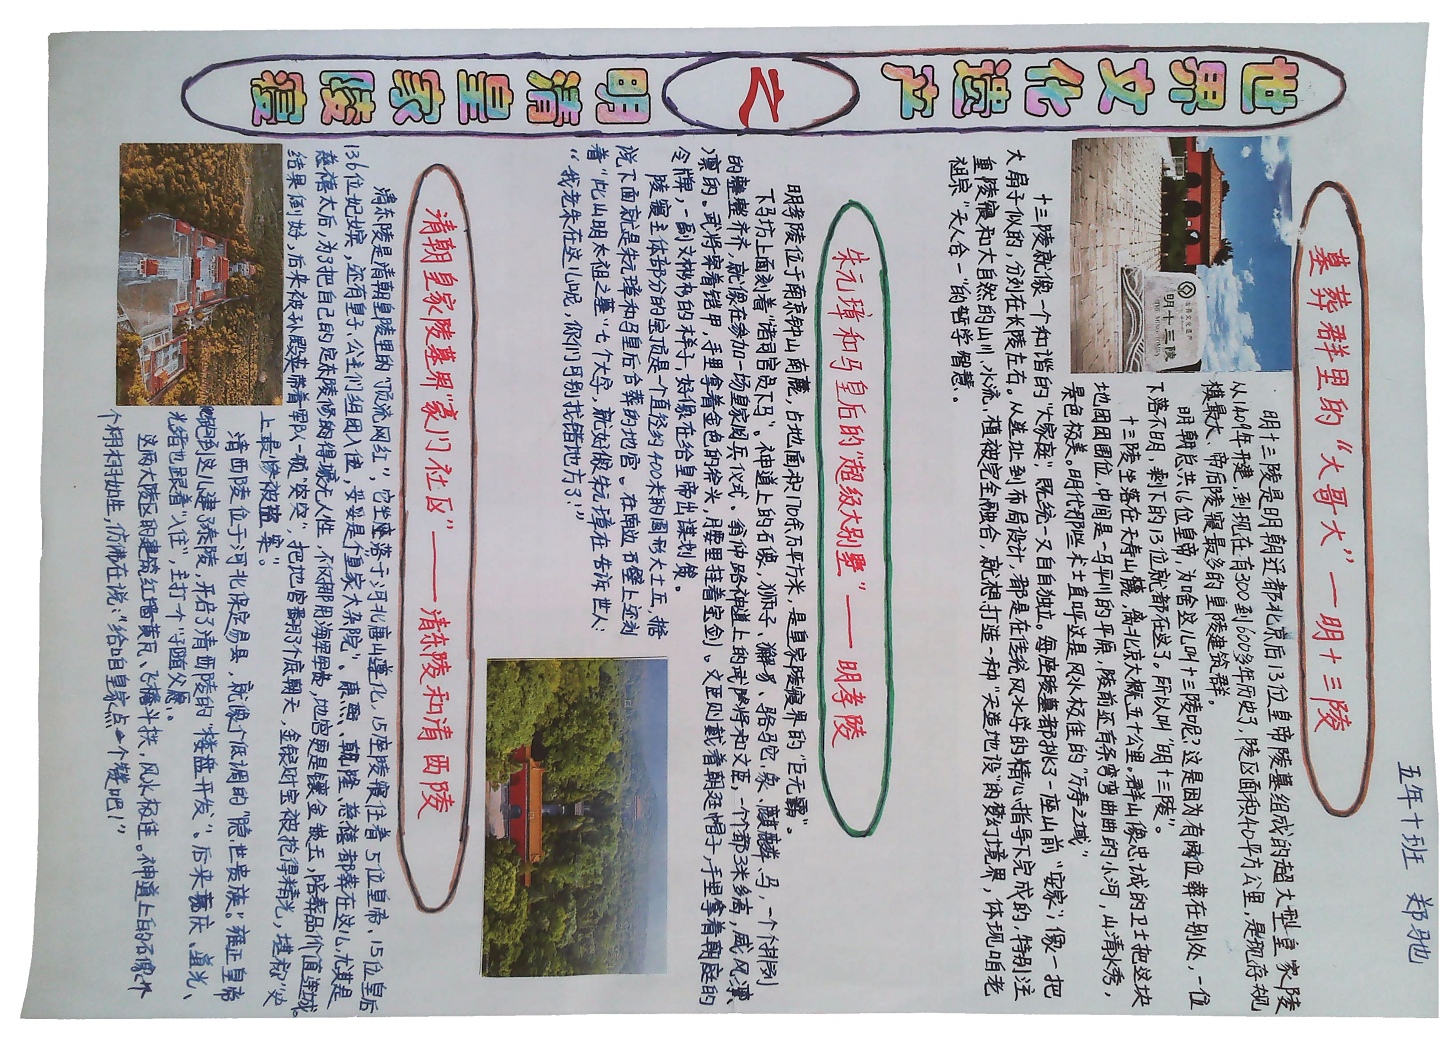 五年十班 郑驰
世界文化遗产之明清皇家陵寝
墓葬群里的“大哥大”—明十三陵
世界文化遗产
明十三陵
THE MING TOMBS
明十三陵是明朝迁都北京后13位皇帝陵墓组成的超大型皇家陵
从1409年开建,到现在有300到600多年历史了,陵区面积40平方公里,是现存规
模最大、帝后陵寝最多的皇陵建筑群。
明朝总共16位皇帝,为啥这儿叫十三陵呢?这是因为有两位葬在别处,一位
下落不明,剩下的13位就都在这了。所以叫“明十三陵”。
十三陵坐落在天寿山麓,离北京大概五十公里。群山像忠诚的卫士把这块
地团团围住,中间是一马平川的平原,陵前还有条弯弯曲曲的小河,山清水秀,
景色极美。明代那些术士直呼这是风水极佳的“万寿之域”
十三陵就像一个和谐的“大家庭”;既统一又自自独立。每座陵墓都挑了一座山前“安家”;像一把
大扇子似的,分列在长陵左右。从选址到布局设计,都是在传统风水学的精心指导下完成的,特别注
重陵寝和大自然的山川、水流、植被完全融合,就想打造一种“天造地设”的梦幻境界,体现咱老
祖宗“天人合一”的哲学智慧。
朱元璋和马皇后的“超级大别墅”——明孝陵
明孝陵位于南京钟山南麓,占地面积170余万平方米,是皇家陵寝界的“巨无霸”。
下马坊上面刻着“诸司官员下马”。神道上的石像,狮子、獬豸、骆驼、象、麒麟、马,一个个排列
的整整齐齐,就像在参加一场皇家阅兵仪式。翁仲路神道上的武将和文臣,一个个都3米多高,威风凛
凛的。武将穿着铠甲,手里拿着金色的斧头,腰里挂着宝剑。文臣则戴着朝廷帽子,手里拿着朝庭的
令牌,一副文彬彬的样子,好像在给皇帝出谋划策。
陵寝主体部分的宝顶是一个直径约400米的圆形大土丘,据
说下面就是朱元璋和马皇后合葬的地宫。在南边石壁上还刻
着“此山明太祖之墓”七个大字,就好像朱元璋在告诉世人:
“我老朱在这儿呢,你们可别找错地方了!”
清朝皇家陵墓界“豪门社区”——清东陵和清西陵
清东陵是清朝皇陵里的“顶流网红”,它坐座落于河北唐山遵化,15座陵寝住着5位皇帝、15位皇后
136位妃嫔,还有皇子、公主们组团入住,妥妥是个“皇家大杂院”。康熙、乾隆、慈禧都葬在这儿,尤其是
慈禧太后,为了把自己的定东陵修的得壕无人性,不仅挪用海军军费,地宫更是镶金嵌玉,陪葬品价值连城。
结果倒好,后来被孙殿英带着军队一顿“突突”,把地宫翻了个底朝天,金银财宝被抢得精光,堪称“史
上最惨被盗案”。
清西陵位于河北保定易县,就像个低调的“隐世贵族”。雍正皇帝
跑到这儿建了泰陵,开启了清西陵的“楼盘开发”。后来嘉庆、道光、
光绪也跟着“入住”,主打一个“子随父愿”。
这两大陵区的建筑红墙黄瓦、飞檐斗拱,风水极佳。神道上的石像个
个栩栩如生,仿佛在说:“给咱皇家点个赞吧!”